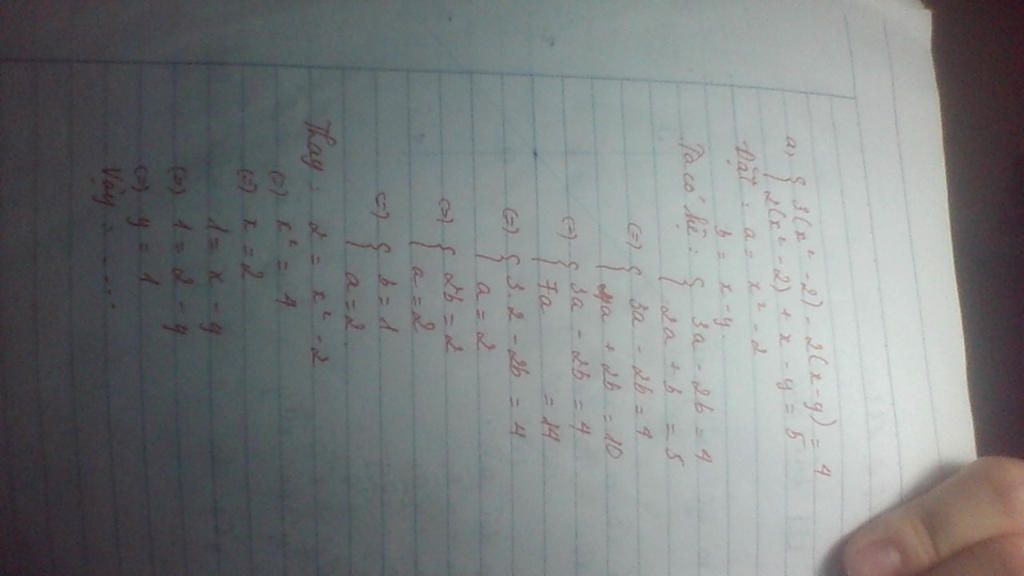 a, { 3(x² - 2) - 2(x - y) = 4
{ 2(x² - 2) + x - y = 5
Đặt : a = x² - 2
b = x - y.
Ta có hệ : { 3a - 2b = 4
{ 2a + b = 5
(=) { 3a - 2b = 4
{ 4a + 2b = 10
(=) { 3a - 2b = 4
{ 7a = 14
(=) { 3.2 - 2b = 4
{ a = 2
(=) { 2b = 2
{ a = 2
(=) { b = 1
{ a = 2
Thay : 2 = x² - 2
(=) x² = 4
(=) x = 2
1 = x - y
(=) 1 = 2 - y
(=) y = 1
Vậy : .....